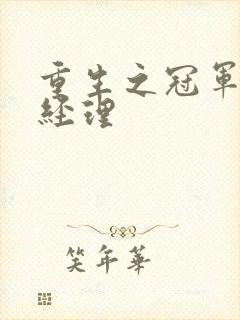 重生之冠軍
經理
笑年華